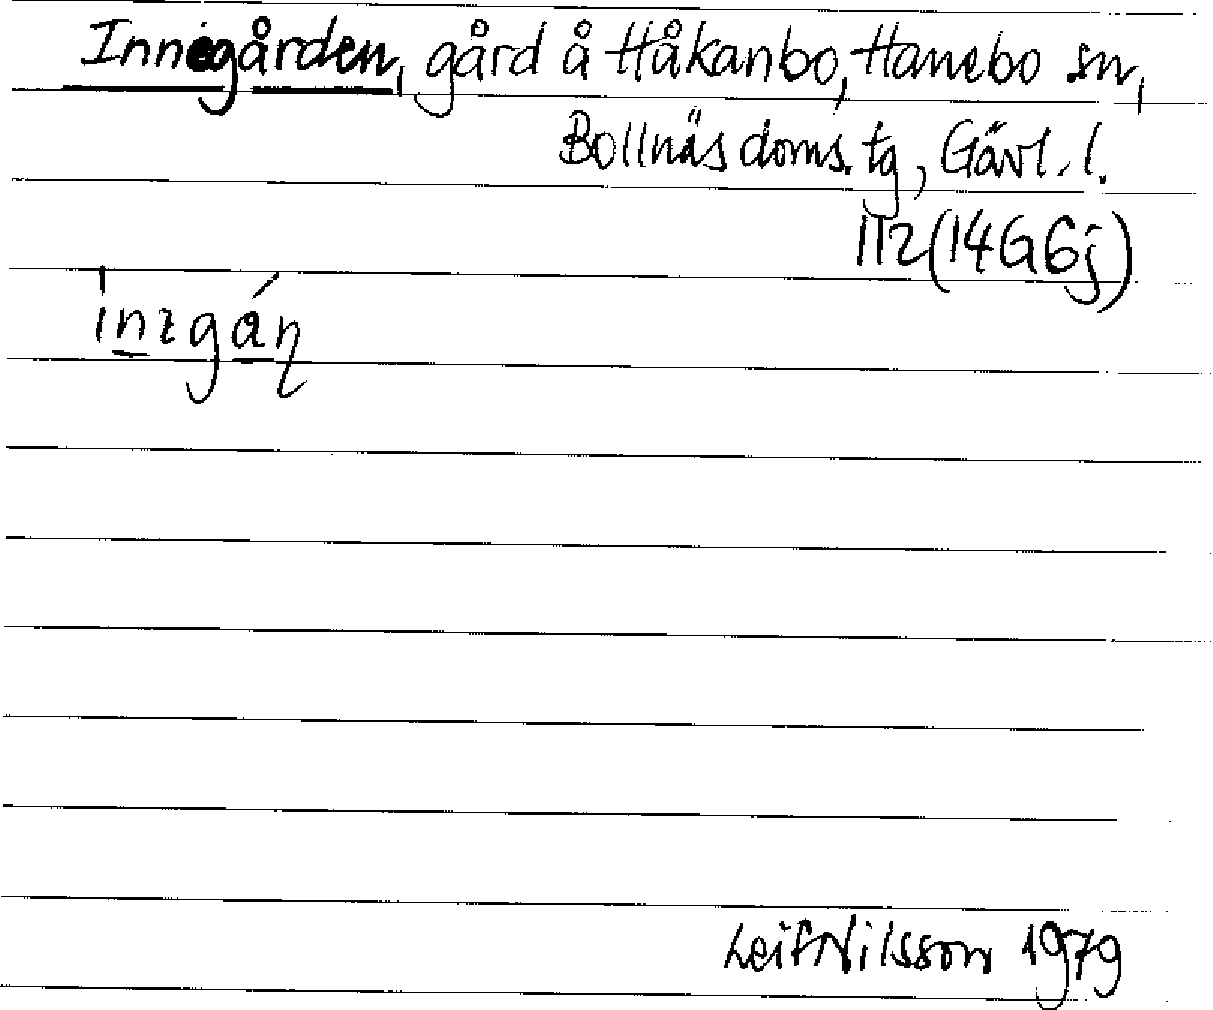 Innegården, gård å Håkanbo, Hanebo sn,
Bollnäs doms. tg, Gävl. l.
112 (14G6j)
Leif Nilsson 1979